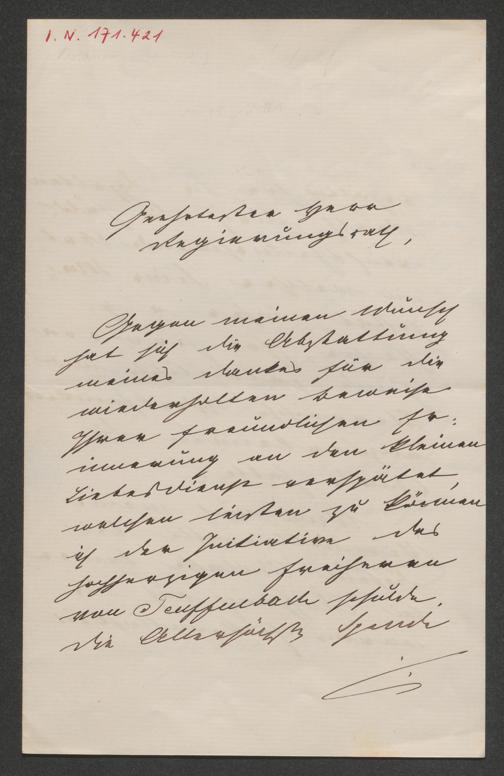 I. N. 171.421
Geehrtester Herr
Regierungsrath,
Gegen meinen Wunsch
hat sich die Abstattung
meines Dankes für die
wiederholten Beweise
Ihrer freundlichen Er-
innerung an den kleinen
Liebesdienst verspätet,
welchen leisten zu können
ich der Initiative des
hochherzigen Freiherrn
von Teuffenbach schulde.
Die Allerhöchste Spende